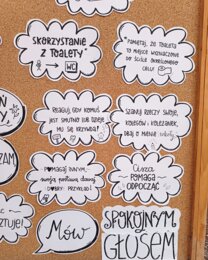 SKORZYSTANIE
Z TOALETY
WC
PAMIĘTAJ, ŻE TOALETA
TO MIEJSCE WYZNACZONE
DO ŚCIŚLE OKREŚLONEGO
CELU!
REAGUJ GDY KOMUŚ
JEST SMUTNO LUB DZIEJE
MU SIĘ KRZYWDA!
SZANUJ RZECZY SWOJE,
KOLEGÓW I KOLEŻANEK,
DBAJ O MIENIE szkoły
ZAM
POMAGAJ INNYM,
swoją postawą dawaj
DOBRY PRZYKŁAD!
Cisza
POMAGA
ODPOCZĄĆ
MÓW
SPOKOJNYM
GŁOSEM